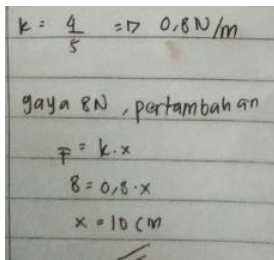 k = 4/5 => 0,8 N/m
gaya 8N, pertambahan
F = k.x
8 = 0,8.x
x = 10 cm